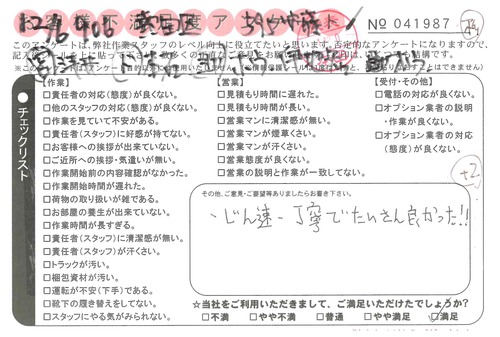 No 041987
このアンケートは、弊社作業スタッフのレベル向上に役立てたいと思います。否定的なアンケートになりますので、
チェックリスト
【作業】
□責任者の対応(態度)が良くない。
□他のスタッフの対応(態度)が良くない。
□作業を見ていて不安がある。
□責任者(スタッフ)に好感が持てない。
□お客様への挨拶が出来ていない。
□ご近所への挨拶・気遣いが無い。
□作業開始前の内容確認がなかった。
□作業開始時間が遅れた。
□荷物の取り扱いが雑である。
□お部屋の養生が出来ていない。
□作業時間が長すぎる。
□責任者(スタッフ)に清潔感が無い。
□責任者(スタッフ)が汗くさい。
□トラックが汚い。
□梱包資材が汚い。
□運転が不安(下手)である。
□靴下の履き替えをしてない。
□スタッフにやる気がみられない。
【営業】
□見積もり時間に遅れた。
□見積もり時間が長い。
□営業マンに清潔感が無い。
□営業マンが煙草くさい。
□営業マンが汗くさい。
□営業態度が良くない。
□営業の説明と作業が一致してない。
【受付・その他】
□電話の対応が良くない。
□オプション業者の説明
・作業が良くない。
□オプション業者の対応
(態度)が良くない。
+2
その他、ご意見・ご要望等ありましたらお書き下さい。
・じん速・丁寧でたいさん良かった!!
☆当社をご利用いただきまして、ご満足いただけたでしょうか?
□不満 □やや不満 □普通 □やや満足 □満足